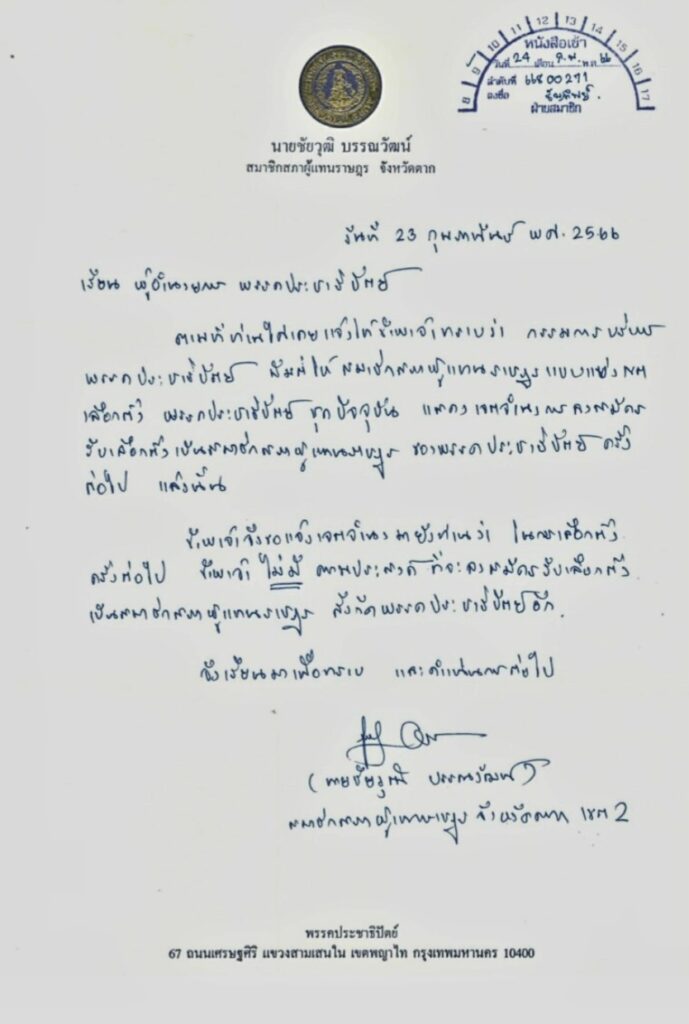 8 9 10 11 12 13 14 15 16 17
หนังสือเข้า
วันที่ 24 เดือน ก.พ. พ.ศ. 66
ลำดับที่ 66800271
ลงชื่อ
ฝ่ายสมาชิก
นายชัยวุฒิ บรรณวัฒน์
สมาชิกสภาผู้แทนราษฎร จังหวัดตาก
วันที่ 23 กุมภาพันธ์ พ.ศ. 2566
เรียน ผู้อำนวยการ พรรคประชาธิปัตย์
ตามที่ท่านได้เคยแจ้งให้ข้าพเจ้าทราบว่า กรรมการบริหาร
พรรคประชาธิปัตย์ มีมติให้ สมาชิกสภาผู้แทนราษฎรแบบแบ่งเขต
เลือกตั้ง พรรคประชาธิปัตย์ ชุดปัจจุบัน แสดงเจตจำนงการลงสมัคร
รับเลือกตั้งเป็นสมาชิกสภาผู้แทนราษฎร ของพรรคประชาธิปัตย์ ครั้ง
ต่อไป แล้วนั้น
ข้าพเจ้าจึงขอแจ้งเจตจำนงมายังท่านว่า ในการเลือกตั้ง
ครั้งต่อไป ข้าพเจ้า ไม่มี ความประสงค์ ที่จะลงสมัครรับเลือกตั้ง
เป็นสมาชิกสภาผู้แทนราษฎร สังกัดพรรคประชาธิปัตย์อีก.
จึงเรียนมาเพื่อทราบ และดำเนินการต่อไป
(นายชัยวุฒิ บรรณวัฒน์)
สมาชิกสภาผู้แทนราษฎร จังหวัดตาก เขต 2
พรรคประชาธิปัตย์
67 ถนนเศรษฐศิริ แขวงสามเสนใน เขตพญาไท กรุงเทพมหานคร 10400